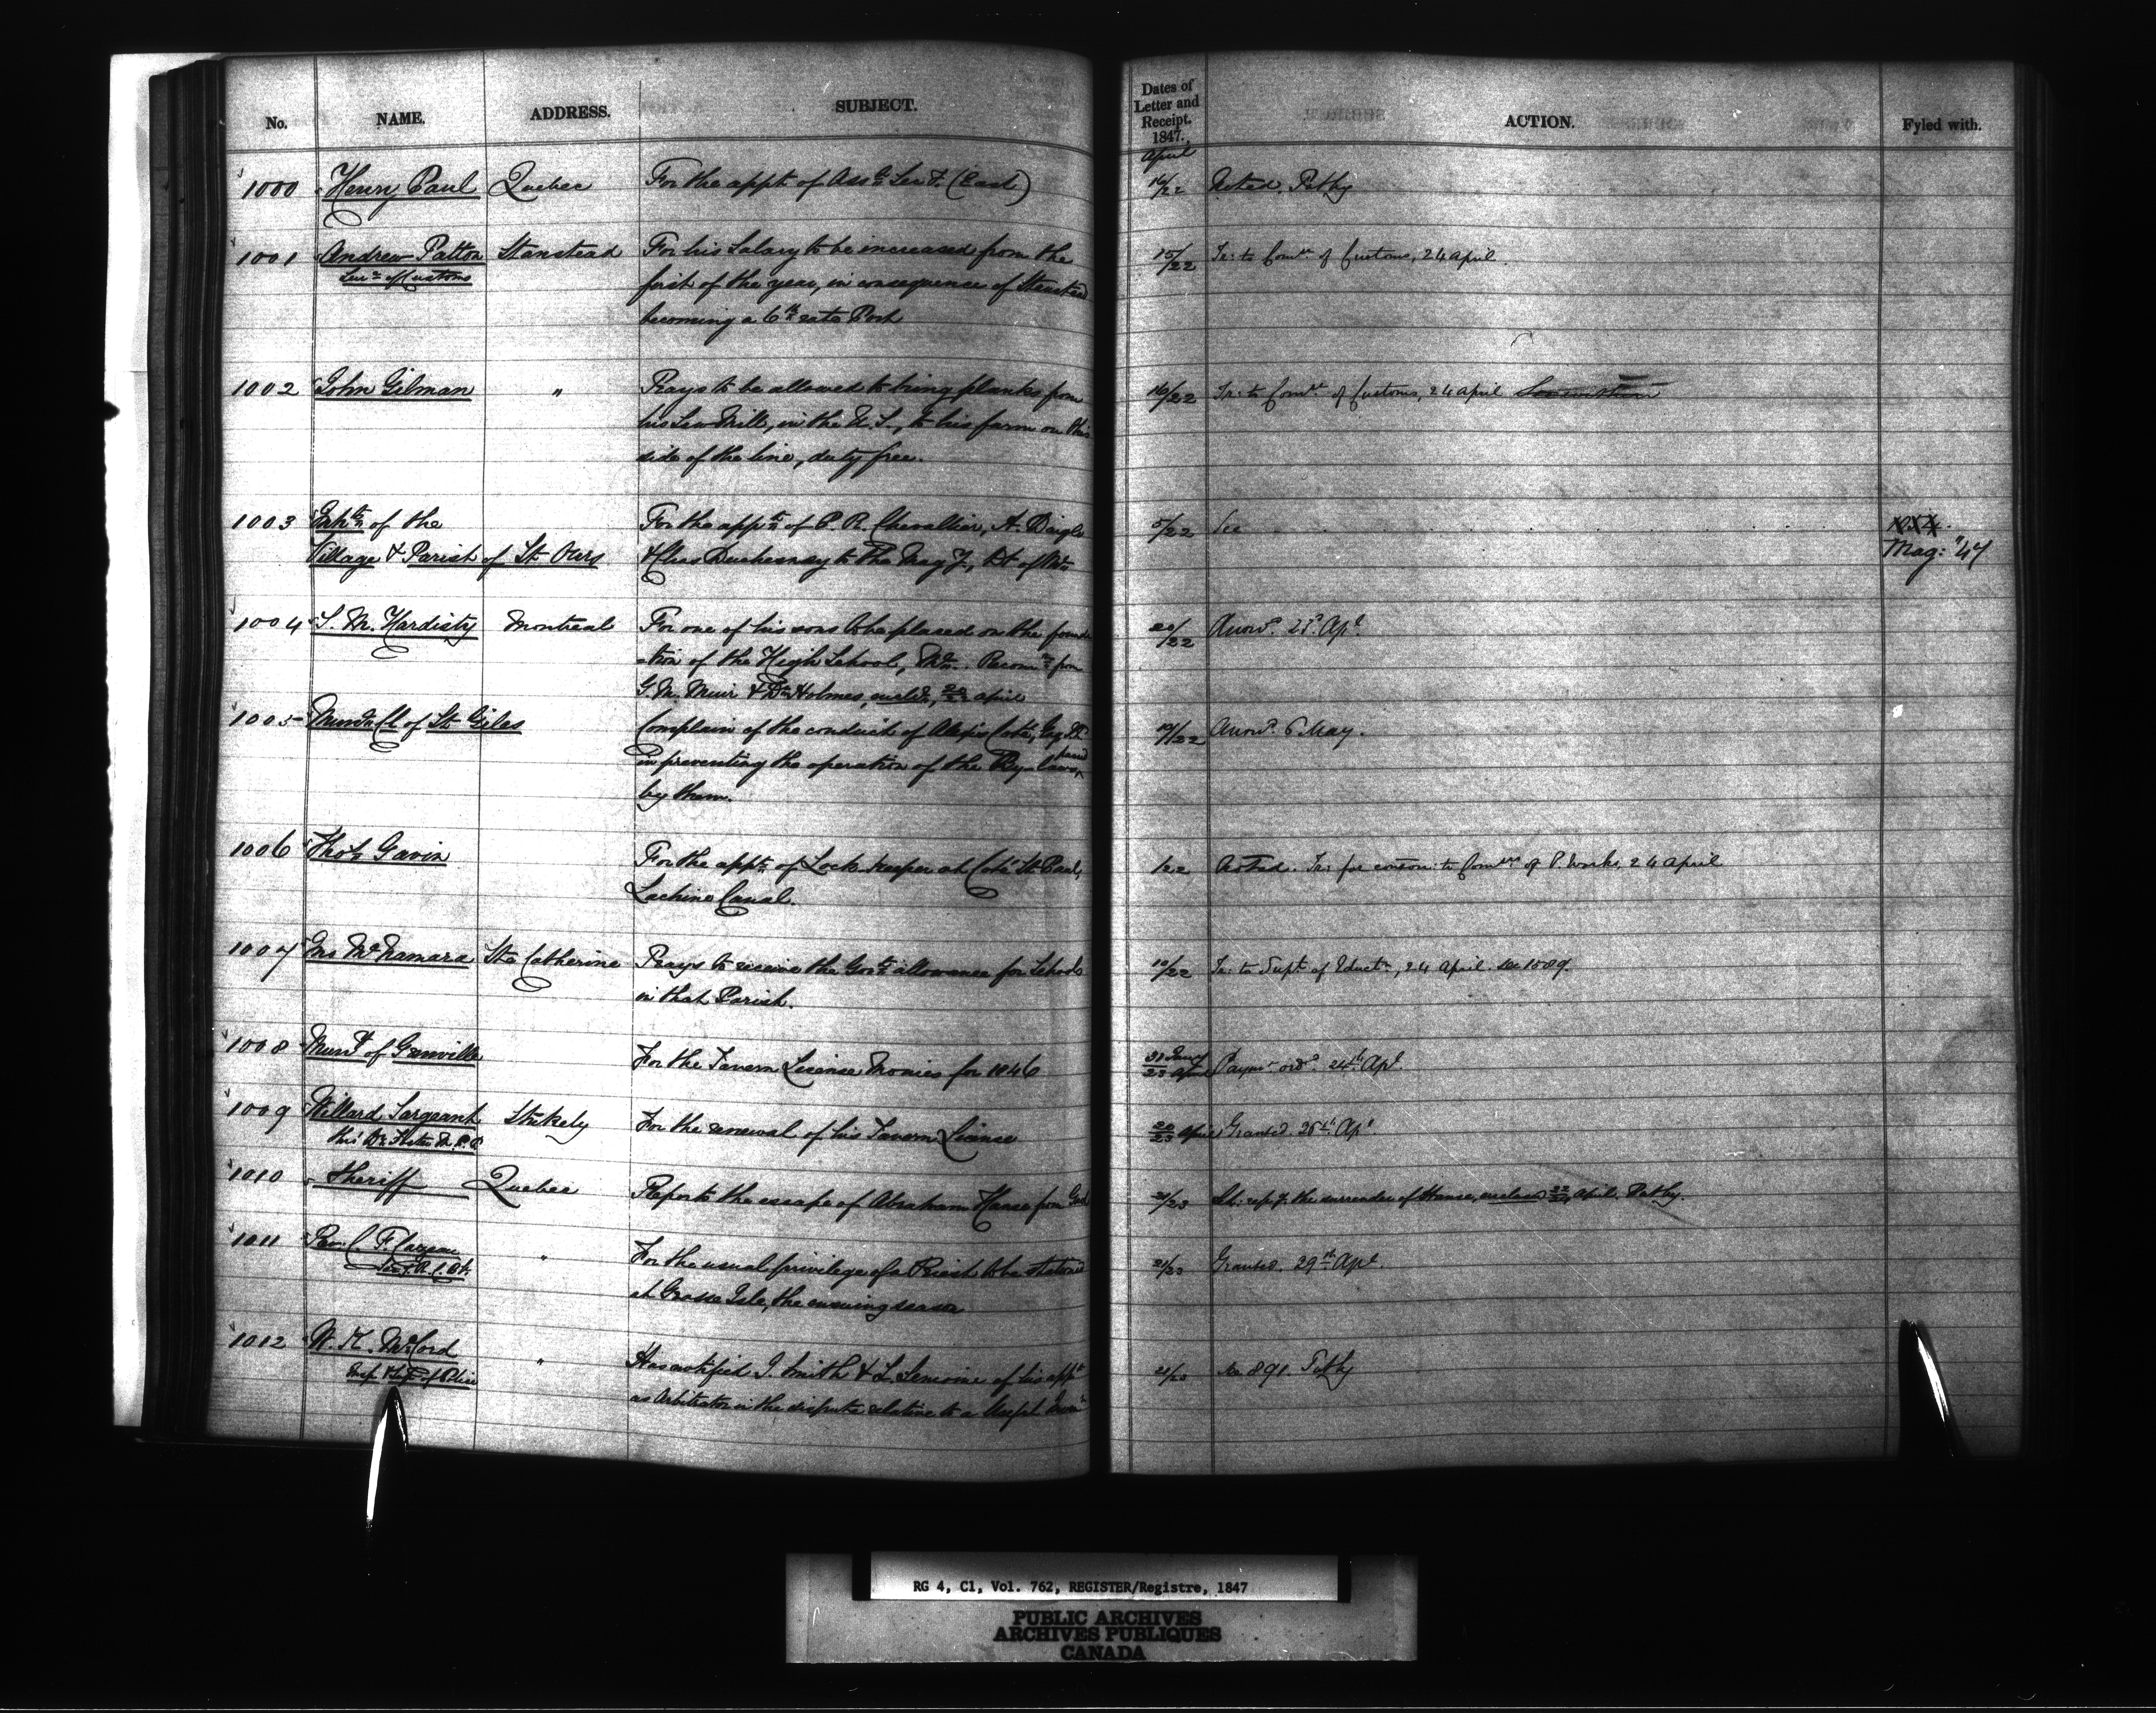 No. NAME. ADDRESS. SUBJECT. Dates of Letter and Receipt. 1847. ACTION. Fyled with.
April
1000 Henry Paul Quebec For the appt. of Asst. Secy. (East) 16/22 Noted. Pethy
1001 Andrew Patton Stanstead For his Salary to be increased from the 15/22 Tr: to Comrs. of Customs, 24 April
of Customs first of the year, in consequence of Stanstead
becoming a 6th rate Port
1002 John Gilman " Prays to be allowed to bring planks from 16/22 Tr: to Comrs. of Customs, 24 April
his Saw Mill, in the U. S., to his farm on this
side of the line, duty free.
1003 of the For the appts. of P. R. Chevallier, A. Daigle 5/22 See
Village & Parish of St. Ours & Chas Duchesnay to the Magy., Dt. of Mtl. Mag: "47
1004 S. M. Hardisty Montreal For one of his sons to be placed on the founda 20/22 Answd. 28. Apl.
-tion of the High School, Mtl. Recomn. from
G. M. Muir & Dr. Holmes, encld. 20/22 April
1005 Munl. Cl. of St. Giles Complain of the conduct of Alexis Coté, Esq. 19/22 Answd. 6 May.
in preventing the operation of the By-laws, passed
by them.
1006 Thos. Gavin For the appt. of Lock keeper at Coté St. Paul, /22 Noted. Tr: for conson: to Comrs. of P. Works, 24 April
Lachine Canal.
1007 Jno McNamara Ste Catherine Prays to receive the Govt. allowance for Schools 10/22 Tr: to Supt. of Eductn., 24 April. see 1589.
in that Parish.
1008 Munty. of Grenville For the Tavern License Monies for 1846 30 Jany/23 April Paymt. ord. 24th. Apl.
1009 Willard Sargeant Stukely For the renewal of his Tavern License 20/23 April Grantd. 26th Apl.
thro' Dr. M.P.P.
1010 Sheriff Quebec Reports the escape of Abraham Hanse from Gaol 21/23 Lr. repg. the surrender of Hanse, enclosed 22/24 April. Pethy.
1011 Rev. C. F. Cazeau " For the usual privilege of a Priest to be stationed 21/23 Grantd. 29th Apl.
at Grosse Isle, the ensuing season
1012 W. K. McCord " Has notified J. Smith & L. Lemoine of his appt. 21/23 see 891. Pethy
Insp. & Supt. of Police as Arbitrator in the dispute relative to a
RG 4, C1, Vol. 762, REGISTER/Registre, 1847
PUBLIC ARCHIVES
ARCHIVES PUBLIQUES
CANADA